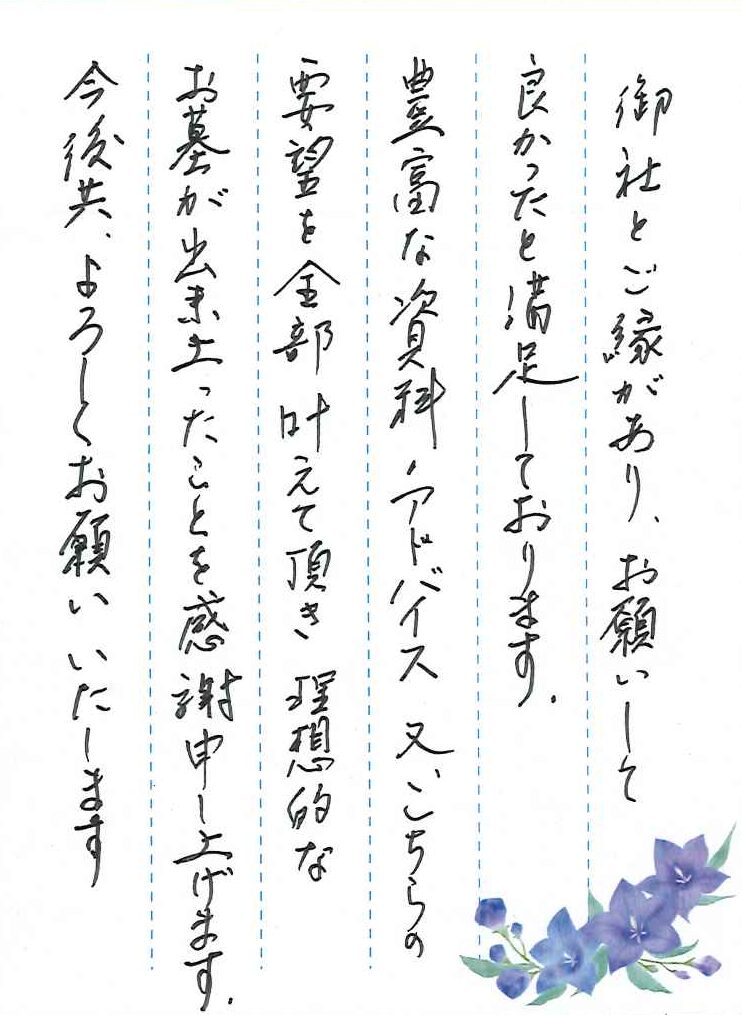 御社とご縁があり、お願いして
良かったと満足しております.
豊富な資料、アドバイス 又こちらの
要望を全部 叶えて頂き 理想的な
お墓が出来上ったことを感謝申し上げます.
今後共、よろしくお願い いたします